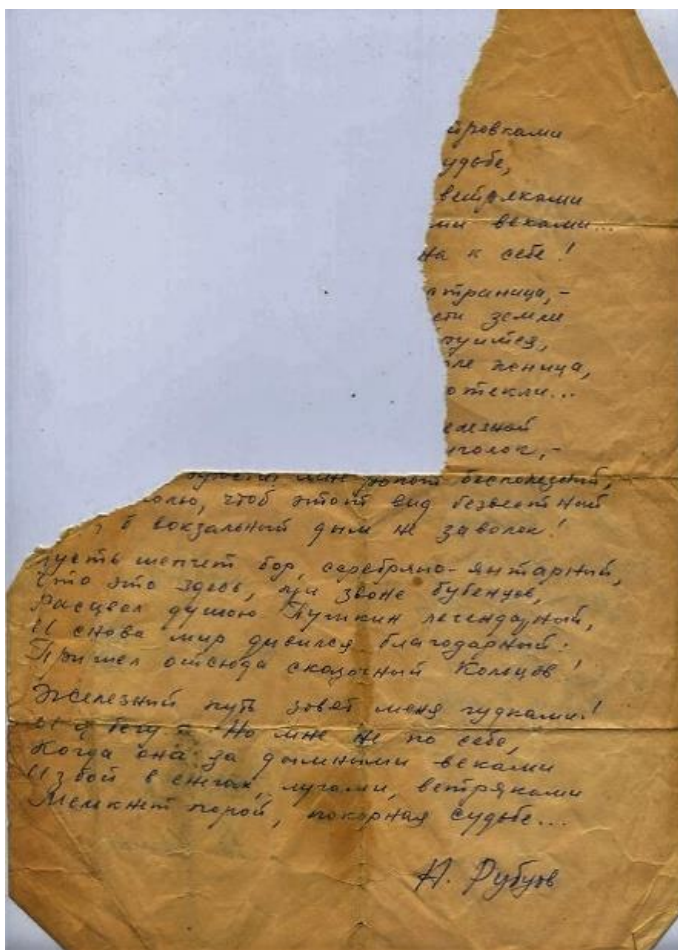 удьбе,
ветряками
ми веками...
на к себе!
страница,-
сти земли
оле жница,
отекли...
елезной
уголок,-
мне ропот бесполезный,
молю, чтоб этот вид безвестный
б вокзальный дым не заволок!
Пусть шепчет бор, серебряно-янтарный,
Что это здесь, при звоне бубенцов,
Расцвел душою Пушкин легендарный,
И снова мир дивился благодарный:
Пришел отсюда сказочный Кольцов!
Железный путь зовет меня гудками!
И я бегу - Но мне не по себе,
Когда она за дымными веками
Избой в снегах, лугами, ветряками
Мелькнет порой, покорная судьбе...
Н. Рубцов